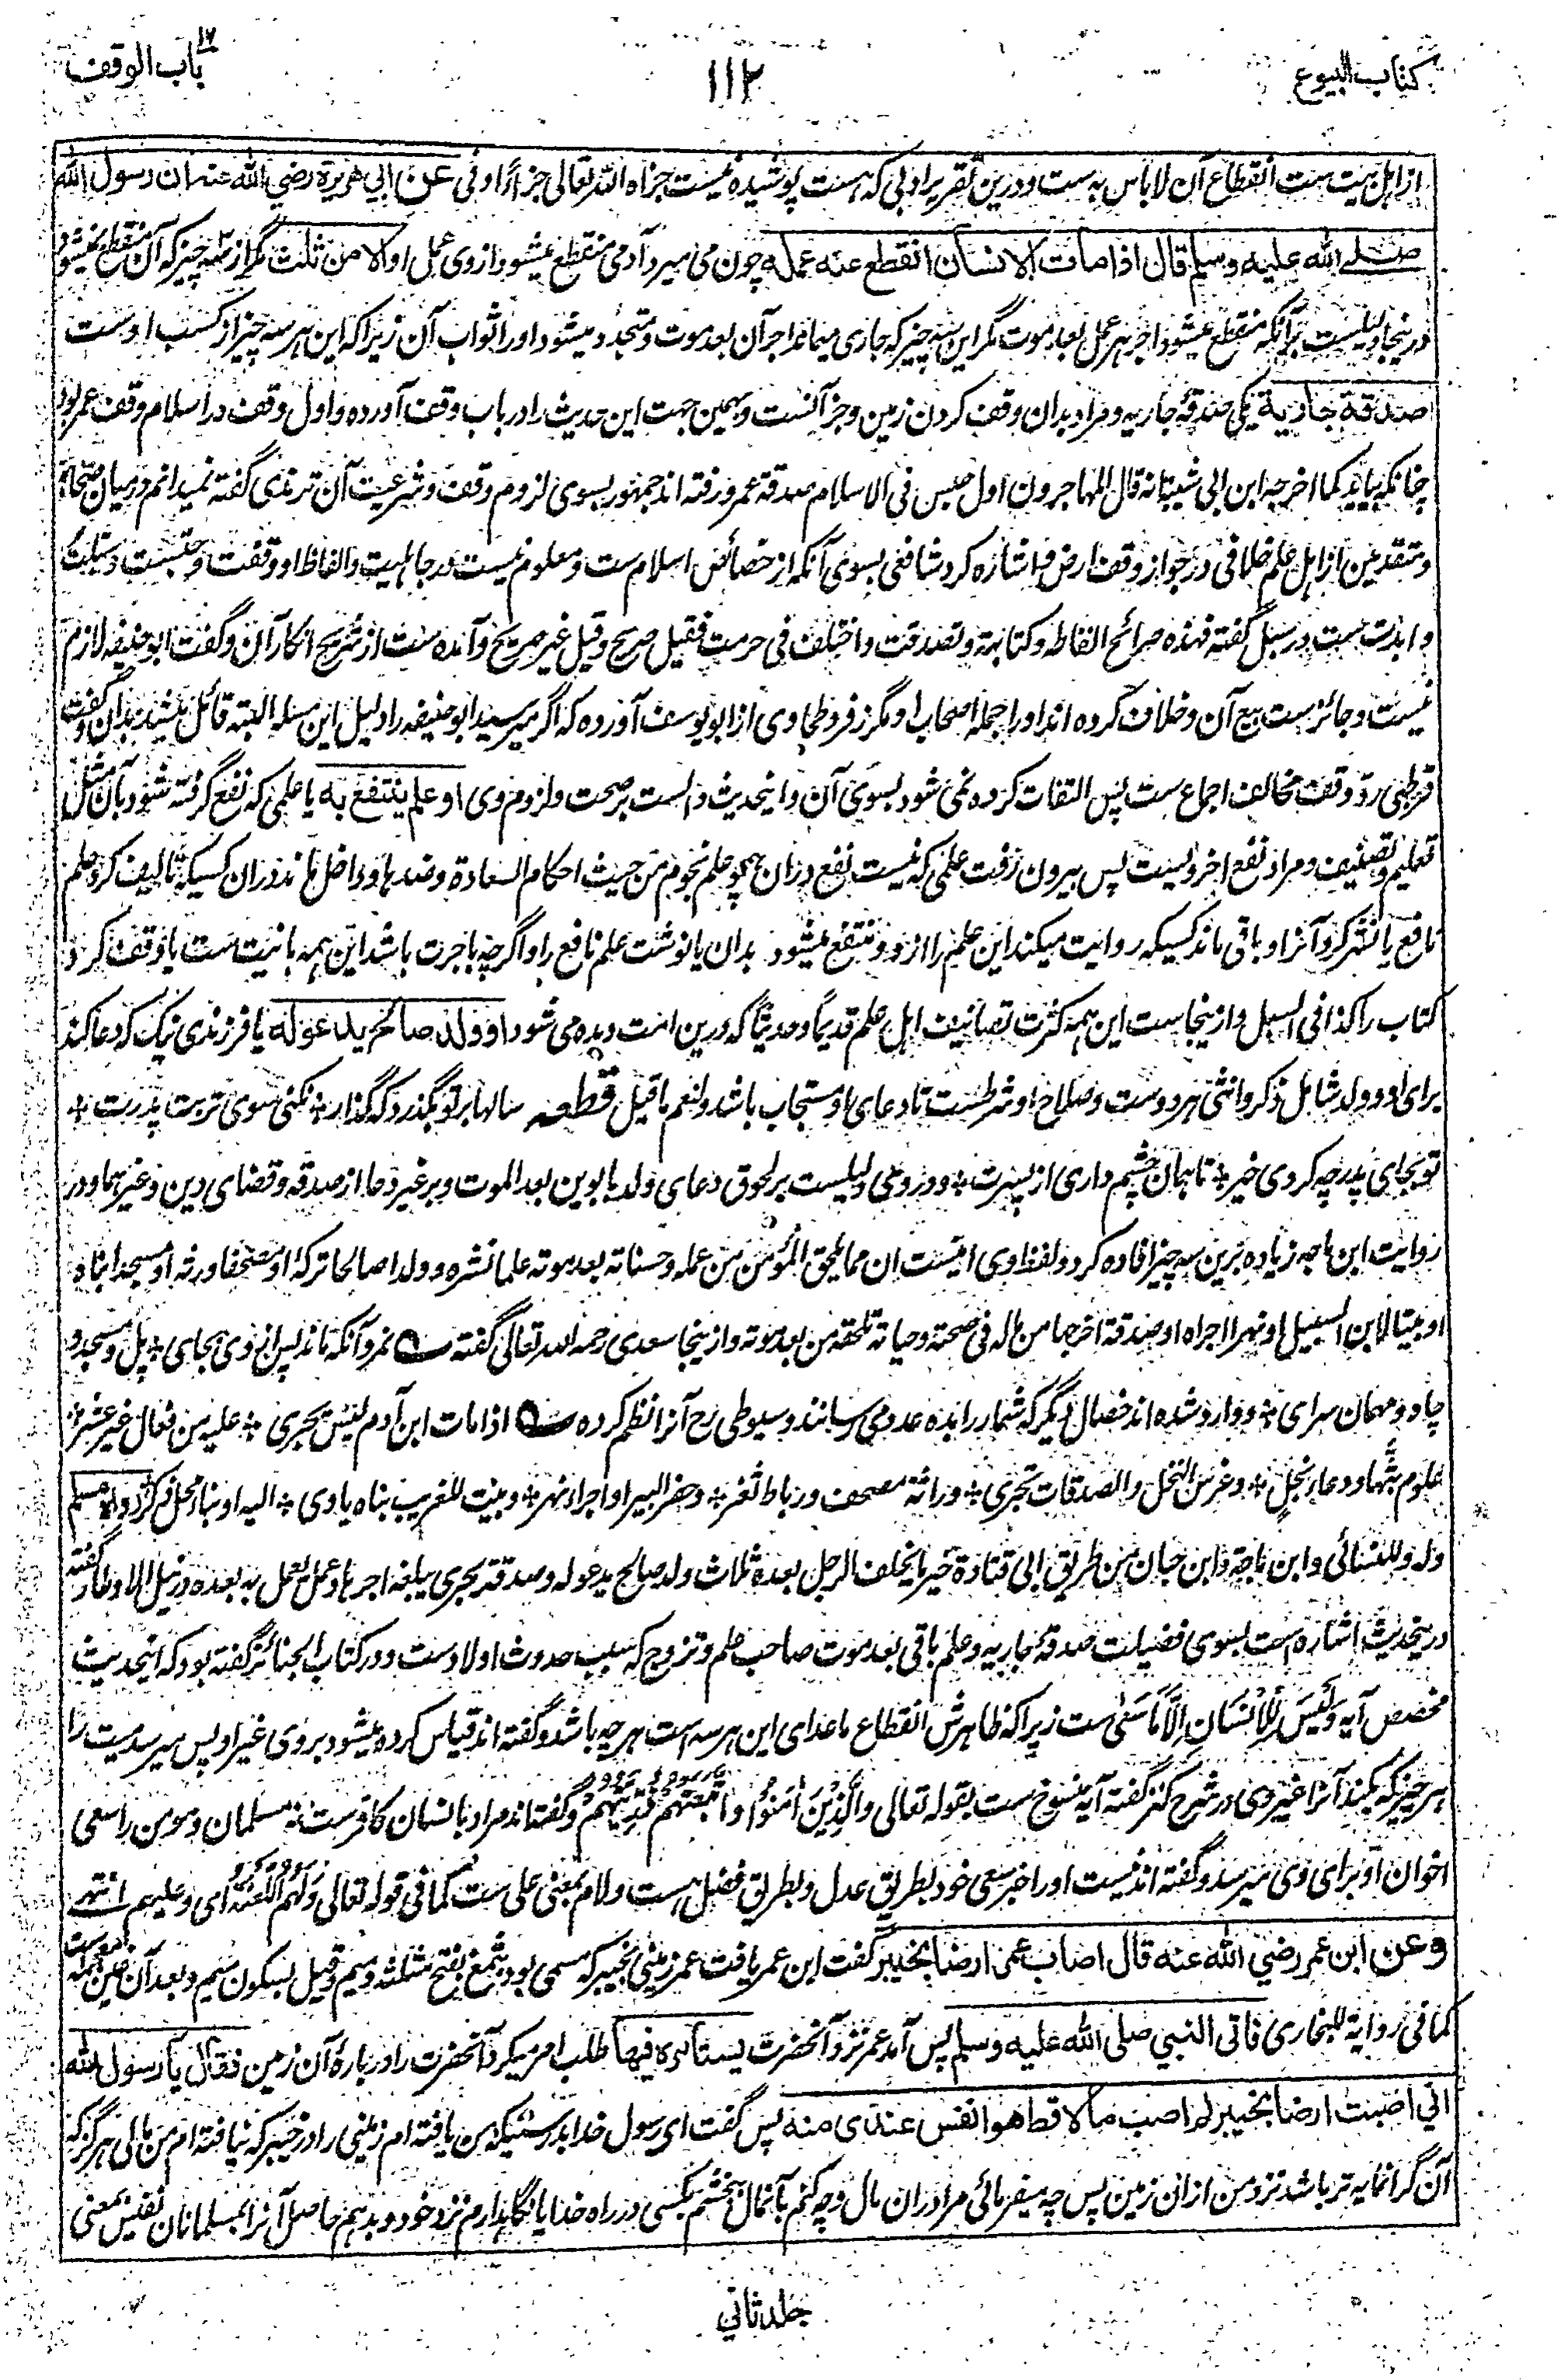 كتاب البيوع
١١٢
باب الوقف
از اهل بیت ست انقطاع آن لا باس به ست و درین تقریر اولی که هست پوشیده نیست جزاه الله تعالی جزاءً اوفی عن ابي هريرة رضي الله عنه ان رسول الله
صلى الله عليه وسلم قال اذا مات الانسان انقطع عنه عمله چون می میرد آدمی منقطع میشود از وی عمل او الا من ثلث مگر از سه چیز که آن منقطع نمیشود
درینجا دلیلست برآنکه منقطع میشود اجر هر عمل بعد موت مگر این سه چیز که جاری میماند اجر آن بعد موت و متجدد میشود او را ثواب آن زیراکه این هر سه چیز از کسب اوست
صدقة جارية یکی صدقهٔ جاریه و مراد بدان وقف کردن زمین و جز آنست و بهمین جهت این حدیث را در باب وقف آورده و اول وقف در اسلام وقف عمر بود
چنانکه بیاید کما اخرجه ابن ابی شیبة انه قال المهاجرون اول حبس فی الاسلام صدقة عمر و رفته اند جمهور بسوی لزوم وقف و شرعیت آن ترمذی گفته نمیدانم درمیان صحابه
و متقدمین از اهل علم خلافی در جواز وقف ارض و اشاره کرد شافعی بسوی آنکه از خصائص اسلام ست و معلوم نیست در جاهلیت و الفاظ او وقفت و حبست و سبلت
و ابدت ست در سبل گفته فهذه صرائح الفاظه و کنایته و تصدقت و اختلف فی حرمت فقیل صریح و قیل غیر صریح و آمده ست از شریح انکار آن و گفت ابو حنیفه لازم
نیست و جائز ست بیع آن و خلاف کرده اند او را جمله اصحاب او مگر زفر و طحاوی از ابو یوسف آورده که اگر میرسید ابو حنیفه را دلیل این مسئله البته قائل میشد بدان و گفت
قرطبی رد وقف مخالف اجماع ست پس التفات کرده نمی شود بسوی آن و اینحدیث دالست بر صحت و لزوم وی او علم ينتفع به یا علمی که نفع گرفته شود بآن مثل
تعلیم و تصنیف و مراد نفع اخرویست پس بیرون رفت علمی که نیست نفع دران همچو علم نجوم من حیث احکام السعادة و ضدها و داخل ماند دران کسیکه تالیف کرد علم
نافع یا نشر کرد آنرا و باقی ماند کسیکه روایت میکند این علم را ازو و منتفع میشود بدان یا نوشت علم نافع را و اگرچه باجرت باشد این همه با نیت ست یا وقف کرد
کتاب را کذا فی السبل و ازینجاست این همه کثرت تصانیف اهل علم قدیماً و حدیثاً که درین امت دیده می شود او ولد صالح يدعو له یا فرزندی نیک که دعا کند
برای او و ولد شامل ذکر و انثی هر دوست و صلاح او شرطست تا دعای او مستجاب باشد و لنعم ما قیل قطعه سالها بر تو بگذرد که گذار * نکنی سوی تربت پدرت *
تو بجای پدر چه کردی خیر * تا همان چشم داری از پسرت * و درو دلیلست بر لحوق دعای ولد بابوین بعد الموت و بر غیر دعا از صدقه و قضای دین و غیرهما و در
روایت ابن ماجه زیاده برین سه چیز افاده کرد و لفظ وی اینست ان مما یلحق المؤمن من عمله و حسناته بعد موته علما نشره و ولدا صالحا ترکه او مصحفا ورثه او مسجدا بناه
او بیتا لابن السبیل او نهرا اجراه او صدقة اخرجها من ماله فی صحته و حیاته تلحقه من بعد موته و ازینجا سعدی رحمه الله تعالی گفته نمرد آنکه ماند پس از وی بجای * پل و مسجد و
چاه و مهمان سرای * و وارد شده اند خصال دیگر که شمار را بده عدد می رسانند و سیوطی رح آنرا نظم کرده اذا مات ابن آدم لیس یجری * علیه من فعال غیر عشر *
علوم بثها و دعاء نجل * و غرس النخل و الصدقات تجری * وراثة مصحف و رباط ثغر * و حفر البیر او اجراء نهر * و بیت للغریب بناه یاوی * الیه او بناء محل ذکر رواه مسلم
وله و للنسائی و ابن ماجة و ابن حبان من طریق ابی قتادة خیر ما یخلف الرجل بعده ثلاث ولد صالح یدعو له و صدقة تجری یبلغه اجرها و عمل یعمل به بعده در نیل الاوطار گفته
درینحدیث اشاره ست بسوی فضیلت صدقهٔ جاریه و علم باقی بعد موت صاحب علم و تزوج که سبب حدوث اولادست و در کتاب الجنائز گفته بود که اینحدیث
مخصص آیه وَلَيْسَ لِلْإِنْسَانِ إِلَّا مَا سَعَىٰ ست زیراکه ظاهرش انقطاع ماعدای این هر سه است هر چه باشد و گفته اند قیاس کرده میشود بروی غیر او پس میرسد میت را
هر چیز که بکند آنرا غیر وی در شرح کنز گفته آیه منسوخ ست بقوله تعالی وَالَّذِينَ آمَنُوا وَاتَّبَعَتْهُمْ ذُرِّيَّتُهُمْ و گفته اند مراد بانسان کافر ست نه مسلمان و مومن را سعی
اخوان او برای وی میرسد و گفته اند نیست او را اجر سعی خود بطریق عدل و بطریق فضل هست و لام بمعنی علی ست کما فی قوله تعالی وَلَهُمُ اللَّعْنَةُ ای و علیهم انتهی
وعن ابن عمر رضي الله عنه قال اصاب عمر ارضا بخيبر گفت ابن عمر یافت عمر زمینی بخیبر که مسمی بود بثمغ بفتح مثلثه و میم و قیل بسکون میم و بعد آن غین معجمه ست
کما فی روایة للبخاری فاتى النبي صلى الله عليه وسلم پس آمد عمر نزد آنحضرت يستأمره فيها طلب امر میکرد آنحضرت را درباره آن زمین فقال يا رسول الله
اني اصبت ارضا بخيبر لم اصب مالا قط هو انفس عندي منه پس گفت ای رسول خدا بدرستیکه من یافته ام زمینی را در خیبر که نیافته ام من مالی هرگز که
آن گرانمایه تر باشد نزد من ازان زمین پس چه میفرمائی مرا دران مال و چه کنم بآنمال ببخشم بکسی در راه خدا یا نگاهدارم نزد خود و بدهم حاصل آنرا بمسلمانان نفیس بمعنی
جلد ثاني